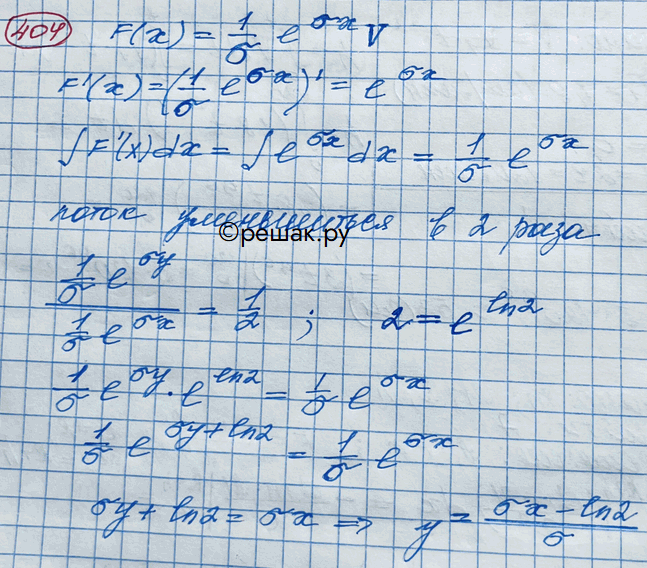 404 F(x) = 1/σ e^σx V
F'(x) = (1/σ e^σx)' = e^σx
∫F'(x)dx = ∫e^σx dx = 1/σ e^σx
поток уменьшиться в 2 раза
©решак.ру
(1/σ e^σy)/(1/σ e^σx) = 1/2 ; 2 = e^ln2
1/σ e^σy · e^ln2 = 1/σ e^σx
1/σ e^σy+ln2 = 1/σ e^σx
σy + ln2 = σx => y = (σx - ln2)/σ